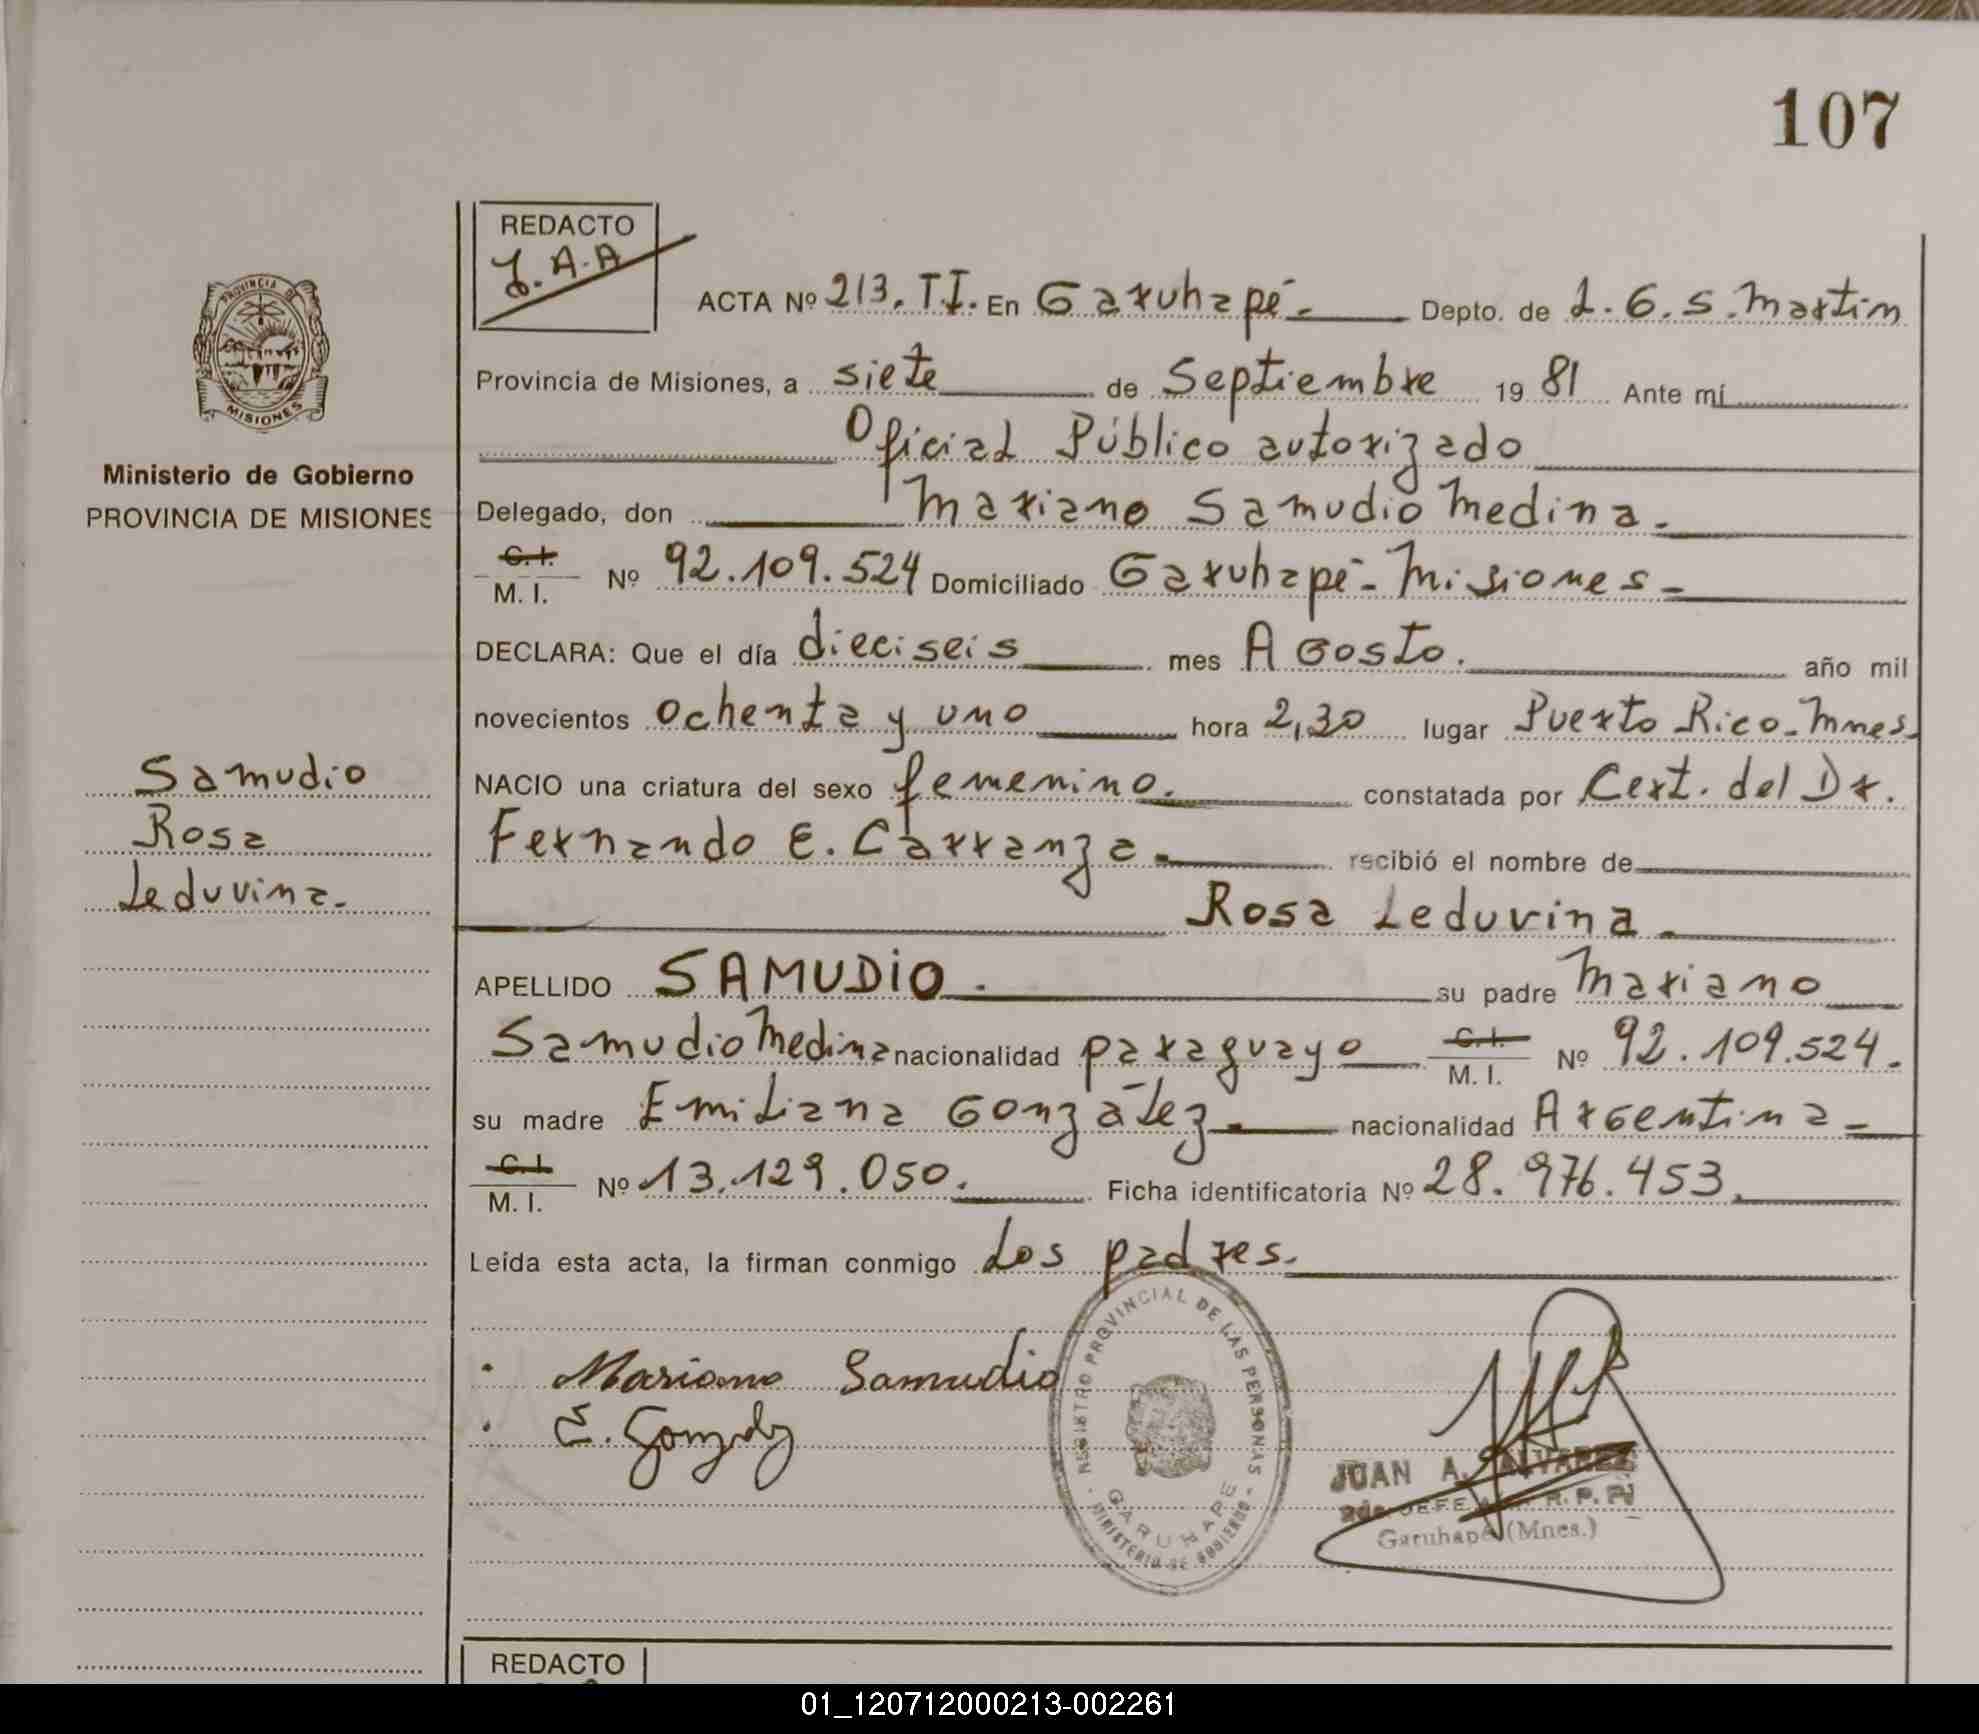 107
REDACTO
J. A. A
ACTA Nº 213. T.I. En Garuhapé.- Depto. de L. G. S. Martin
Provincia de Misiones, a siete de Septiembre 19 81 Ante mí
Oficial Público autorizado
PROVINCIA DE
MISIONES
Ministerio de Gobierno
PROVINCIA DE MISIONES
Delegado, don Mariano Samudio Medina.-
C. I.
M. I. Nº 92.109.524 Domiciliado Garuhapé-Misiones-
DECLARA: Que el día dieciseis mes Agosto. año mil
novecientos ochenta y uno hora 2,30 lugar Puerto Rico-Mnes.
Samudio
Rosa
Leduvina.
NACIO una criatura del sexo femenino. constatada por Cert. del Dr.
Fernando E. Carranza.- recibió el nombre de
Rosa Leduvina.
APELLIDO SAMUDIO. su padre Mariano
Samudio Medina nacionalidad paraguayo C. I.
M. I. Nº 92.109.524.
su madre Emiliana González.- nacionalidad Argentina-
C. I.
M. I. Nº 13.129.050. Ficha identificatoria Nº 28.976.453.
Leída esta acta, la firman conmigo Los padres.
Mariano Samudio
E. Gonzalez
REGISTRO PROVINCIAL DE LAS PERSONAS
GARUHAPE
MINISTERIO DE GOBIERNO
JUAN A. ALVAREZ
2do. JEFE R. P. P.
Garuhapé (Mnes.)
REDACTO
01_120712000213-002261